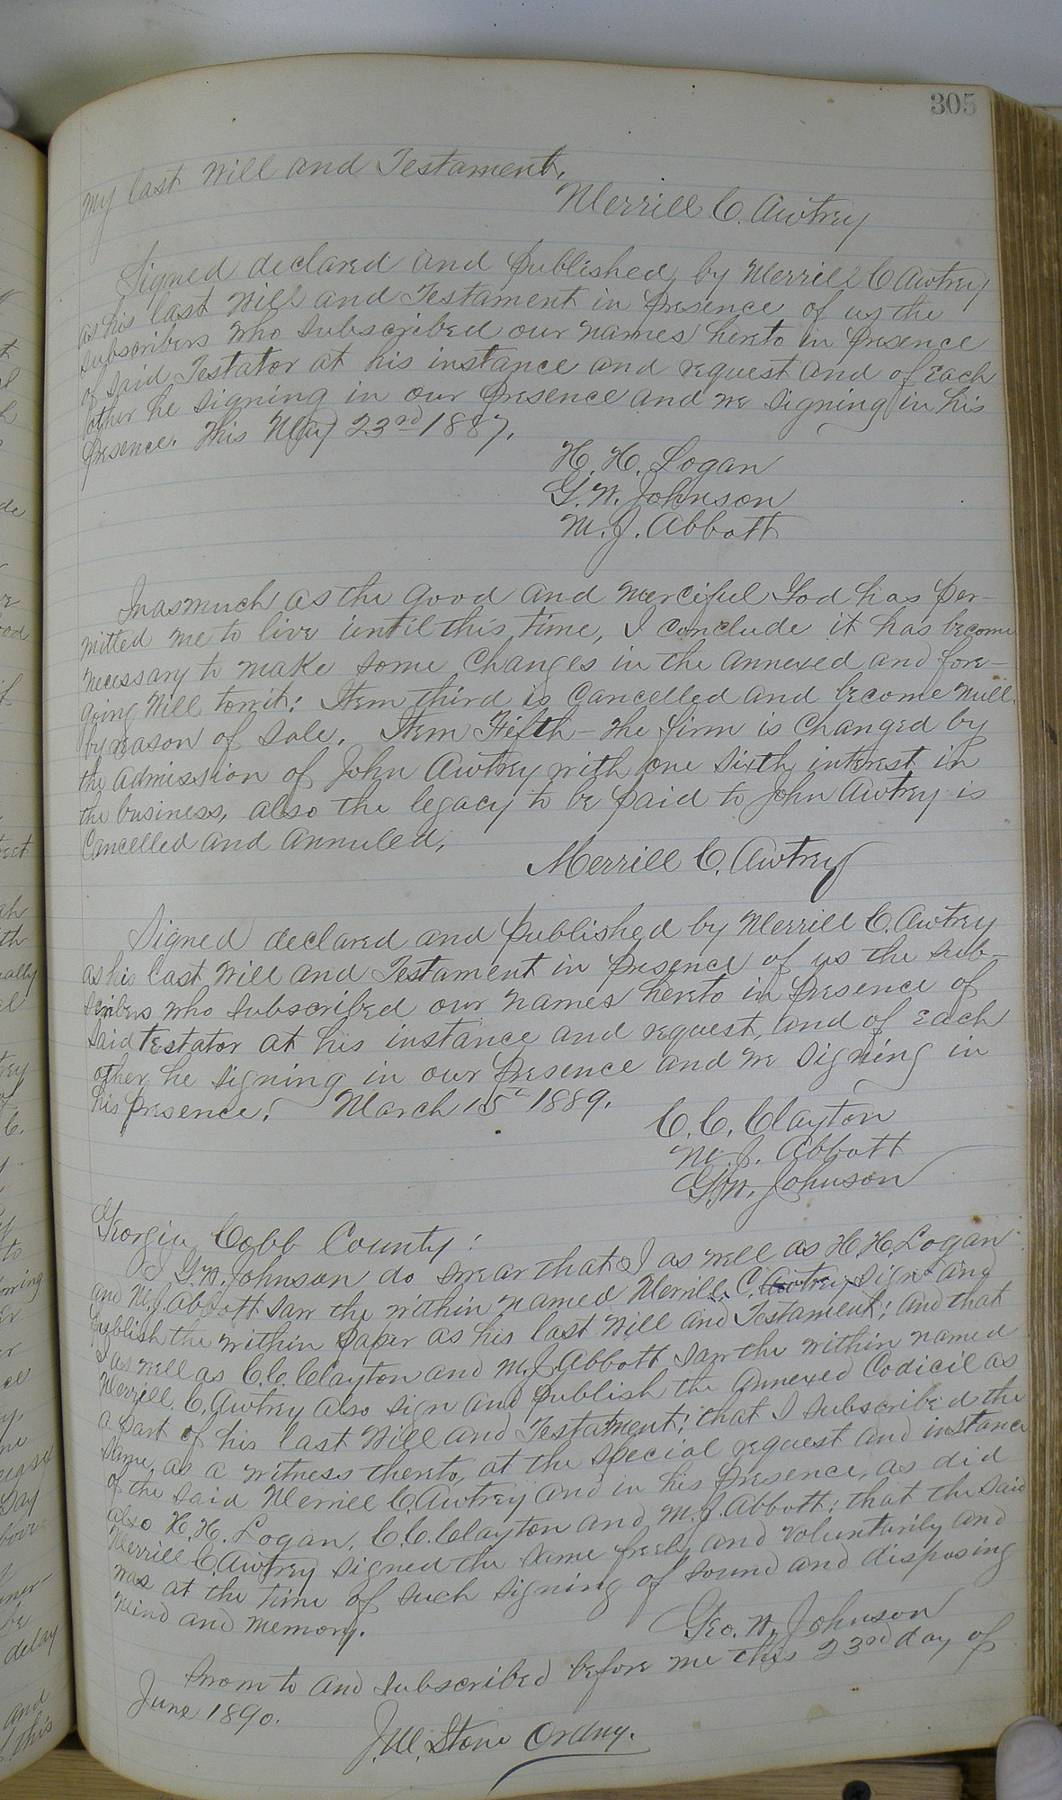 305
my last Will and Testament.
Merrill C. Awtrey
Signed declared and published by Merrill C Awtrey
as his last Will and Testament in presence of us the
subscribers who subscribed our names hereto in presence
of said Testator at his instance and request and of Each
other he signing in our presence and we signing in his
presence. This May 23rd 1887.
H. H. Logan
G. W. Johnson
M. J. Abbott
Inasmuch as the good and merciful God has per-
mitted me to live until this time, I conclude it has become
necessary to make some changes in the annexed and fore-
going Will towit: Item third is cancelled and become null
by reason of sale. Item Fifth - the firm is changed by
the admission of John Awtrey with one sixth interest in
the business, also the legacy to be paid to John Awtrey is
Cancelled and annuled.
Merrill C. Awtrey
Signed declared and published by Merrill C. Awtrey
as his last Will and Testament in presence of us the sub-
scribers who subscribed our names hereto in presence of
said testator at his instance and request, and of each
other he signing in our presence and we signing in
his presence. March 15th 1889.
C. C. Clayton
M. J. Abbott
G. W. Johnson
Georgia, Cobb County:
I G. W. Johnson do swear that I as well as H H Logan
and M. J. Abbott saw the within named Merrill C. Awtrey sign and
publish the within paper as his last Will and Testament; and that
I as well as C. C. Clayton and M. J. Abbott saw the within named
Merrill C. Awtrey also sign and publish the annexed Codicil as
a part of his last Will and Testament; that I subscribed the
same as a witness thereto, at the special request and instance
of the said Merrill C. Awtrey and in his presence, as did
also H. H. Logan, C. C. Clayton and M. J. Abbott: that the said
Merrill C. Awtrey signed the same freely and voluntarily and
was at the time of such signing of sound and disposing
mind and memory.
Geo. W. Johnson
Sworn to and subscribed before me this 23rd day of
June 1890.
J. M. Stone Ordny.